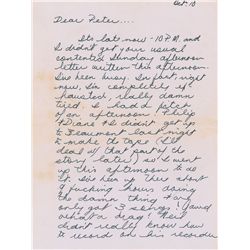 Oct. 10
Dear Peter....
It's late now - 10 P.M. and
I didn't get your usual
contented Sunday afternoon
letter written this afternoon.
I've been busy. In fact, right
now, I'm completely ex-
hausted, really damn
tired. I had a
of an afternoon! Philip
& Diane & I didn't get up
to Beaumont last night
to make the tape (I'll
deal w/ that part of the
story later) so I went up
this afternoon to do
it. I've been up there about
9 fucking hours doing
the damn thing & we
only got 3 songs! (and
what a drag! Neil
didn't really know how
to record on his recorder